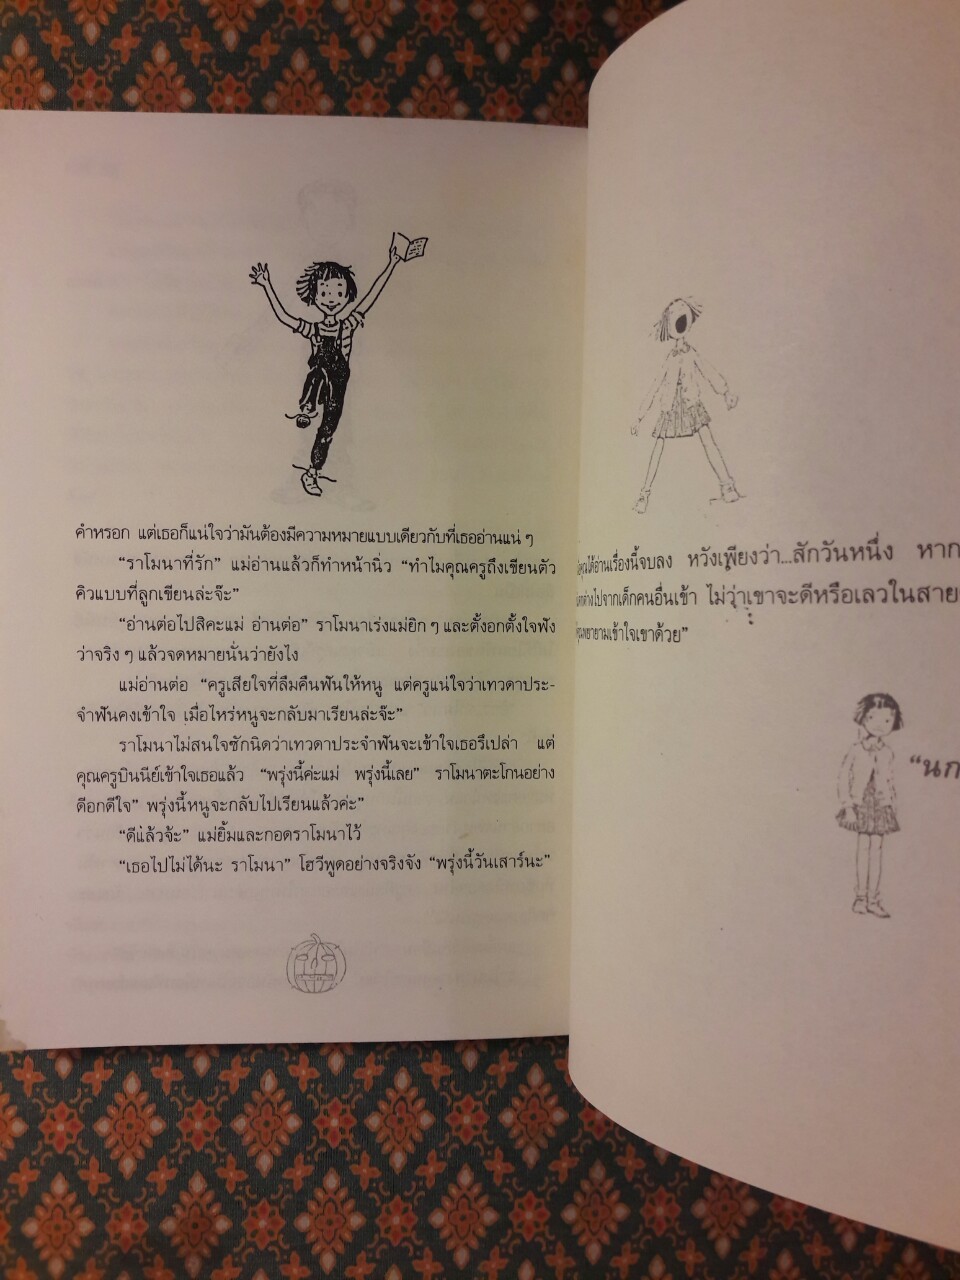 คำหรอก แต่เธอก็แน่ใจว่ามันต้องมีความหมายแบบเดียวกับที่เธออ่านแน่ ๆ
“ราโมนาที่รัก” แม่อ่านแล้วก็ทำหน้านิ่ว “ทำไมคุณครูถึงเขียนตัว
คิวแบบที่ลูกเขียนล่ะจ๊ะ”
“อ่านต่อไปสิคะแม่ อ่านต่อ” ราโมนาเร่งแม่ยิก ๆ และตั้งอกตั้งใจฟัง
ว่าจริง ๆ แล้วจดหมายนั่นว่ายังไง
แม่อ่านต่อ “ครูเสียใจที่ลืมคืนฟันให้หนู แต่ครูแน่ใจว่าเทวดาประ-
จำฟันคงเข้าใจ เมื่อไหร่หนูจะกลับมาเรียนล่ะจ๊ะ”
ราโมนาไม่สนใจซักนิดว่าเทวดาประจำฟันจะเข้าใจเธอรึเปล่า แต่
คุณครูบินนีย์เข้าใจเธอแล้ว “พรุ่งนี้ค่ะแม่ พรุ่งนี้เลย” ราโมนาตะโกนอย่าง
ดีอกดีใจ” พรุ่งนี้หนูจะกลับไปเรียนแล้วค่ะ”
“ดีแล้วจ้ะ” แม่ยิ้มและกอดราโมนาไว้
“เธอไปไม่ได้นะ ราโมนา” โฮวีพูดอย่างจริงจัง “พรุ่งนี้วันเสาร์นะ”
คุณได้อ่านเรื่องนี้จบลง หวังเพียงว่า...สักวันหนึ่ง หาก
แตกต่างไปจากเด็กคนอื่นเข้า ไม่ว่าเขาจะดีหรือเลวในสาย
คุณพยายามเข้าใจเขาด้วย”
“นก